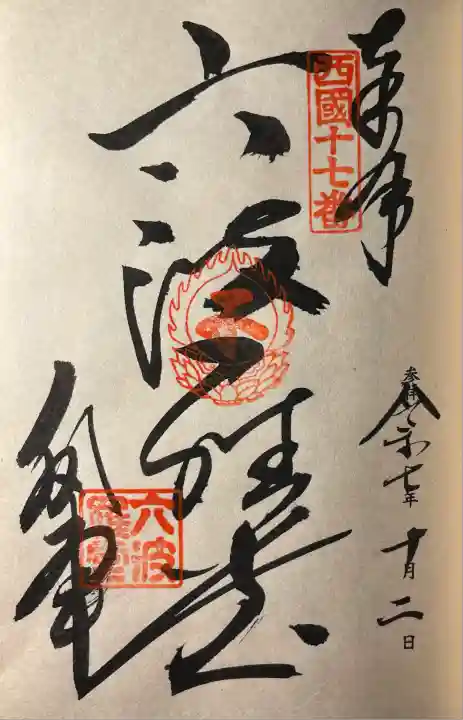 奉拝
西國十七番
参拝 令和七年 十月二日
六波羅堂
六波羅堂